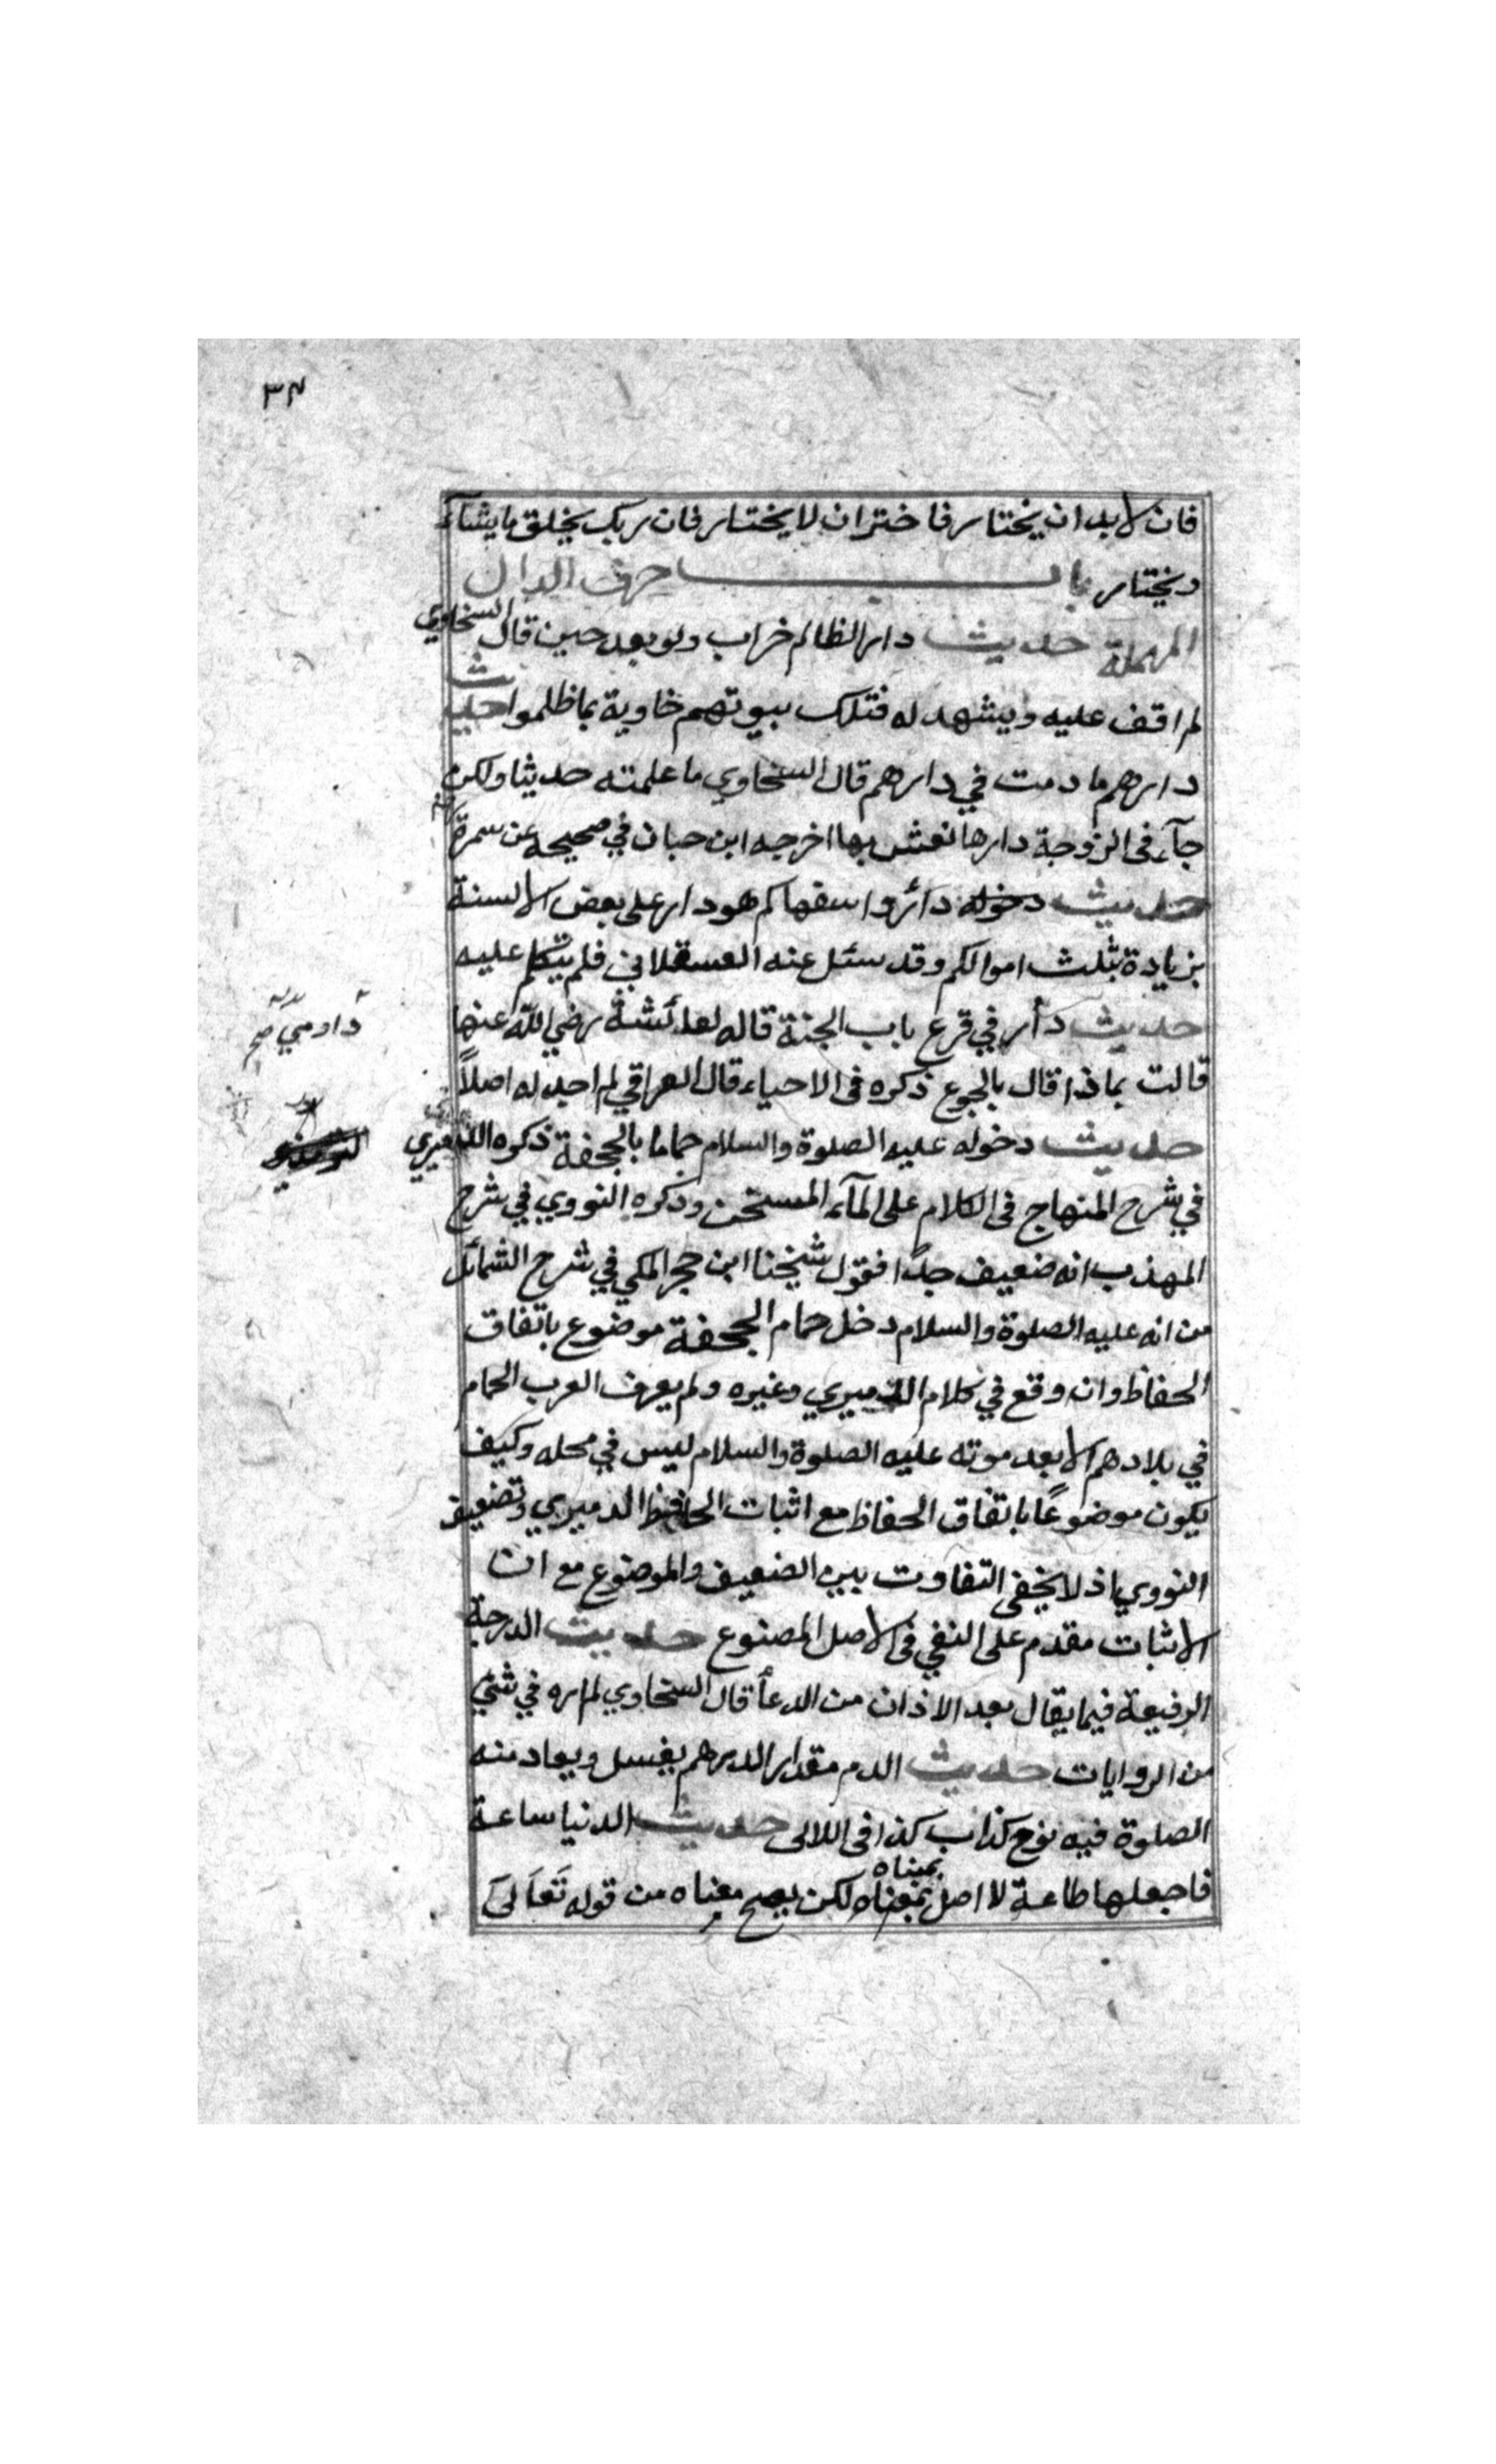 ٣٤
فان لابد ان يختار فاختر ان لا يختار فان ربك يخلق ما يشآء
ويختار باب حرف الدال
المهملة حديث دار الظالم خراب ولو بعد حين قال السخاوي
لم اقف عليه ويشهد له فتلك بيوتهم خاوية بما ظلموا حديث
دارهم ما دمت في دارهم قال السخاوي ما علمته حديثا ولكن
جآء فى الزوجة دارها تعش بها اخرجه ابن حبان في صحيحه عن سمرة
حديث دخوله دائروا سفهاكم هو دار على بعض الالسنة
بزيادة بثلث اموالكم وقد سئل عنه العسقلاني فلم يتكلم عليه
حديث دأر في قرع باب الجنة قاله لعائشة رضي الله عنها
داومي صح
قالت بماذا قال بالجوع ذكره فى الاحياء قال العراقي لم اجد له اصلاً
حديث دخوله عليه الصلوة والسلام حماما بالجحفة ذكره الدميري
في شرح المنهاج فى الكلام على المآء المسخن وذكره النووي في شرح
المهذب انه ضعيف جداً فقول شيخنا ابن حجر المكي في شرح الشمائل
من انه عليه الصلوة والسلام دخل حمام الجحفة موضوع باتفاق
الحفاظ وان وقع في كلام الدميري وغيره ولم يعرف العرب الحمام
في بلادهم الا بعد موته عليه الصلوة والسلام ليس في محله وكيف
يكون موضوعاً باتفاق الحفاظ مع اثبات الحافظ الدميري وتضعيف
النووي اذ لا يخفى التفاوت بين الضعيف والموضوع مع ان
الاثبات مقدم على النفي فى الاصل المصنوع حديث الدرجة
الرفيعة فيما يقال بعد الاذان من الدعأ قال السخاوي لم اره في شئ
من الروايات حديث الدم مقدار الدرهم يغسل ويعاد منه
الصلوة فيه نوح كذاب كذا فى اللالى حديث الدنيا ساعة
بمبناه
فاجعلها طاعة لا اصل بمعناه لكن يصح معناه من قوله تَعَالَى